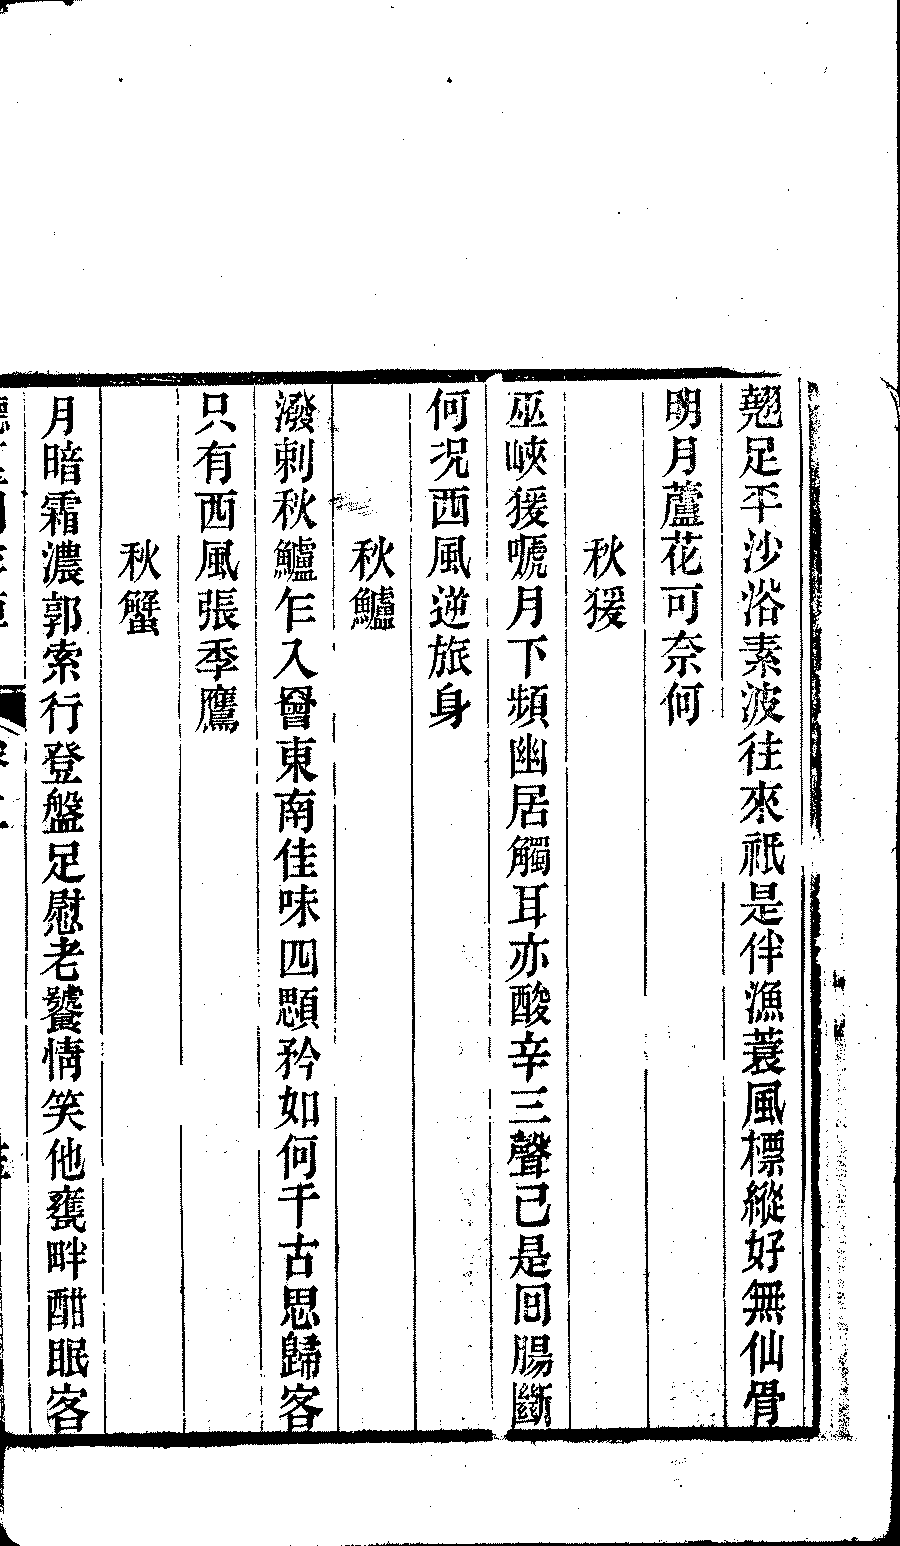 翹足平沙浴素波往來祇是伴漁蓑風標縱好無仙骨
明月蘆花可奈何
秋猨
巫峽猨嗁月下頻幽居觸耳亦酸辛三聲已是囘腸斷
何况西風逆旅身
秋鱸
潑剌秋鱸乍入罾東南佳味四顋矜如何千古思歸客
只有西風張季鷹
秋蟹
月暗霜濃郭索行登盤足慰老饕情笑他甕畔酣眠客